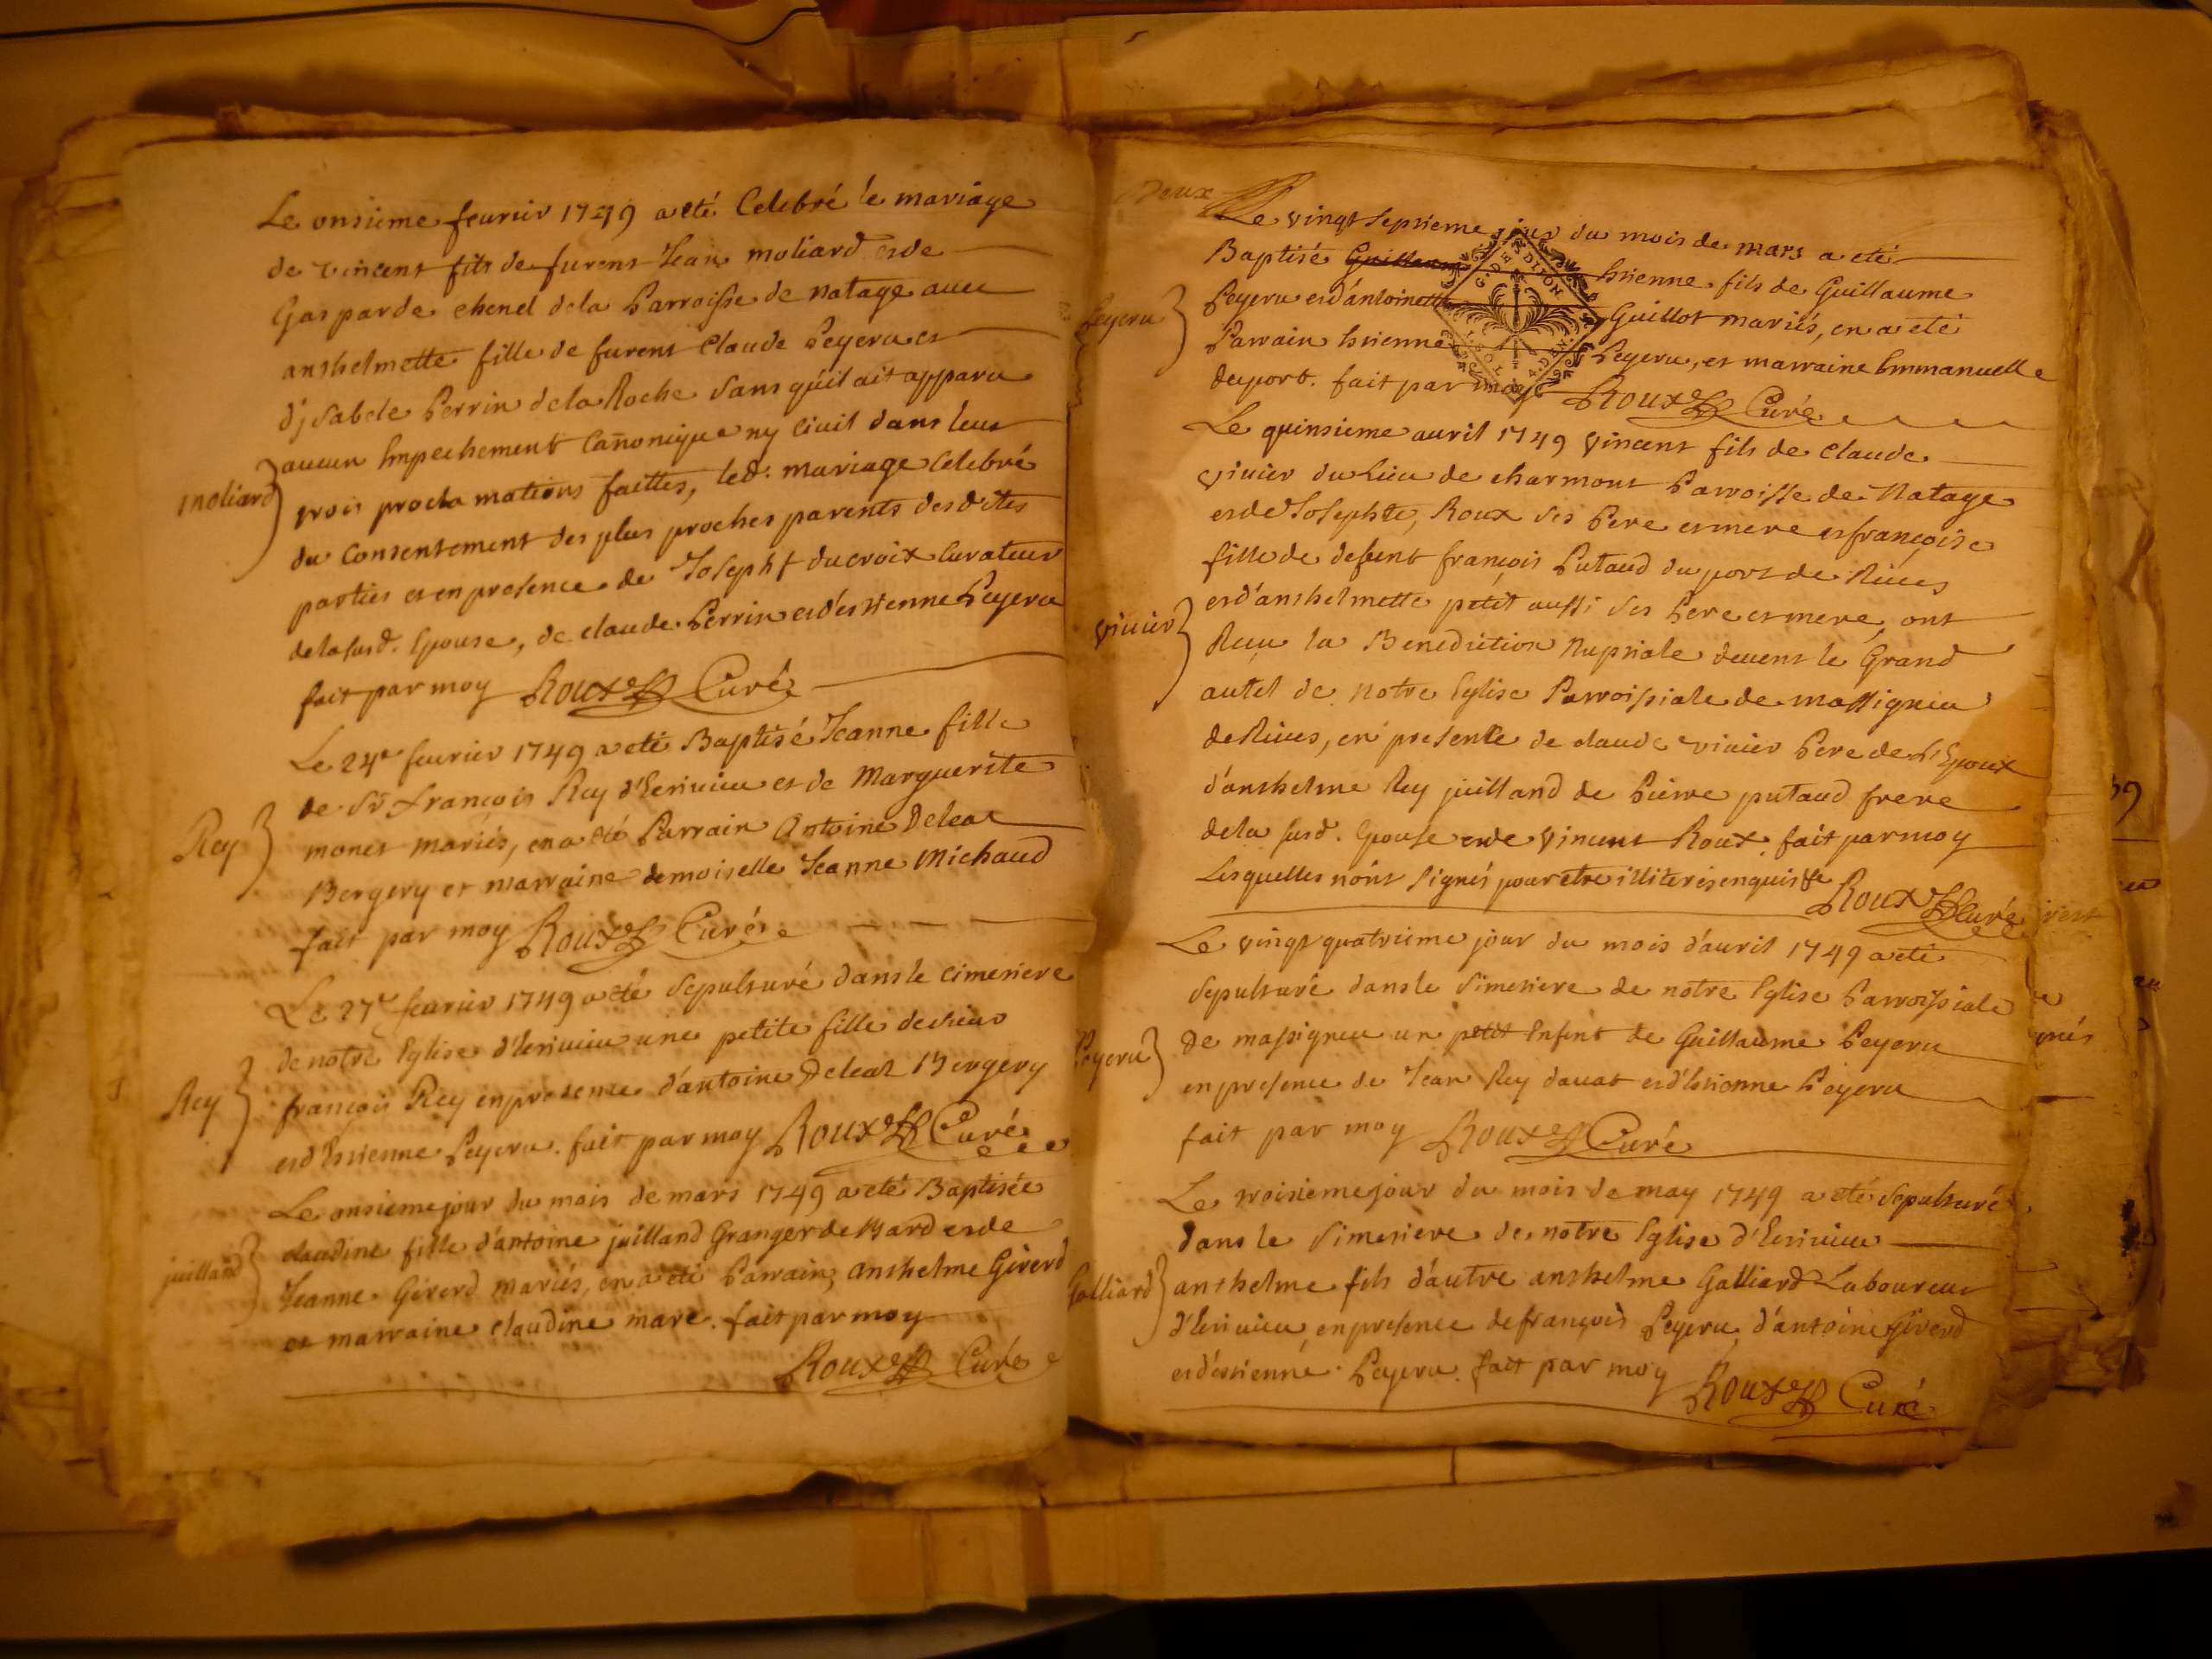 Le onsieme feurier 1749 a eté Celebré le mariage
de vincent fils de furent Jean moliard et de
Gasparde chenel de la Parroisse de natage avec
anthelmette fille de furent Claude Peyeru et
d'jsabele Perrin de la Roche sans qu'il ait apparu
aucun Empechement Canonique ny Civil dans leur
trois proclamations faittes, led. mariage Celebré
moliard
du Consentement des plus proches parents desdites
parties et en presence de Joseph ducroix Curateur
de la susd. Epouse, de claude Perrin et d'estienne Peyeru
fait par moy Roux Curé
Le 24e feurier 1749 a eté Baptisé Jeanne fille
de Sr françois Rey d'Eriuieu et de Marguerite
Rey
monet mariés, en a eté Parrain Antoine Deleaz
Bergery et marraine demoiselle Jeanne Michaud
fait par moy Roux Curé
Le 27e feurier 1749 a eté sepulturé dans le cimetiere
de notre Eglise d'Eriuieu une petite fille de sieur
Rey
françois Rey en presence d'antoine Deleaz Bergery
et d'Estienne Peyeru. fait par moy Roux Curé
Le onsieme jour du mois de mars 1749 a eté Baptisée
claudine fille d'antoine juilland Granger de Bard et de
juilland
Jeanne Girerd mariés, en a eté Parrain, anthelme Girerd
et marraine claudine mare. fait par moy
Roux Curé
Deux
Le vingt septieme jour du mois de mars a eté
Baptisé Guillaume Estienne fils de Guillaume
Peyeru
Peyeru et d'antoinette Guillot mariés, en a eté
Parrain Estienne Peyeru, et marraine Emmanuelle
duport. fait par moy Roux Curé
G. DE DIJON
Le quinsieme auril 1749 vincent fils de Claude
viuier du Lieu de charmont Parroisse de Natage
et de Josephte Roux ses Pere et mere et françoise
fille de defunt françois Putaud du port de Riues
et d'anthelmette petit aussi ses Pere et mere, ont
viuier
Reçu la Benediction Nuptiale deuent le Grand
autel de notre Eglise Parroissiale de massignieu
de Riues, en presence de claude viuier Pere de l'Epoux
d'anthelme Rey juilland de Pierre putaud frere
de la susd. Epouse et de vincent Roux fait par moy
Lesquelles n'ont signés pour etre illiteres enquis
Roux Curé
Le vingt quatrieme jour du mois d'auril 1749 a eté
sepulturé dans le Simetiere de notre Eglise Parroissiale
Peyeru
de massigneu un petit Enfent de Guillaume Peyeru
en presence de Jean Rey dauat et d'Estienne Peyeru
fait par moy Roux Curé
Le troisieme jour du mois de may 1749 a eté sepulturé
dans le Simetiere de notre Eglise d'Eriuieu
Galliard
anthelme fils d'autre anthelme Galliard Laboureur
d'Eriuieu, en presence de françois Peyeru, d'antoine Girerd
et d'estienne Peyeru. fait par moy Roux Curé